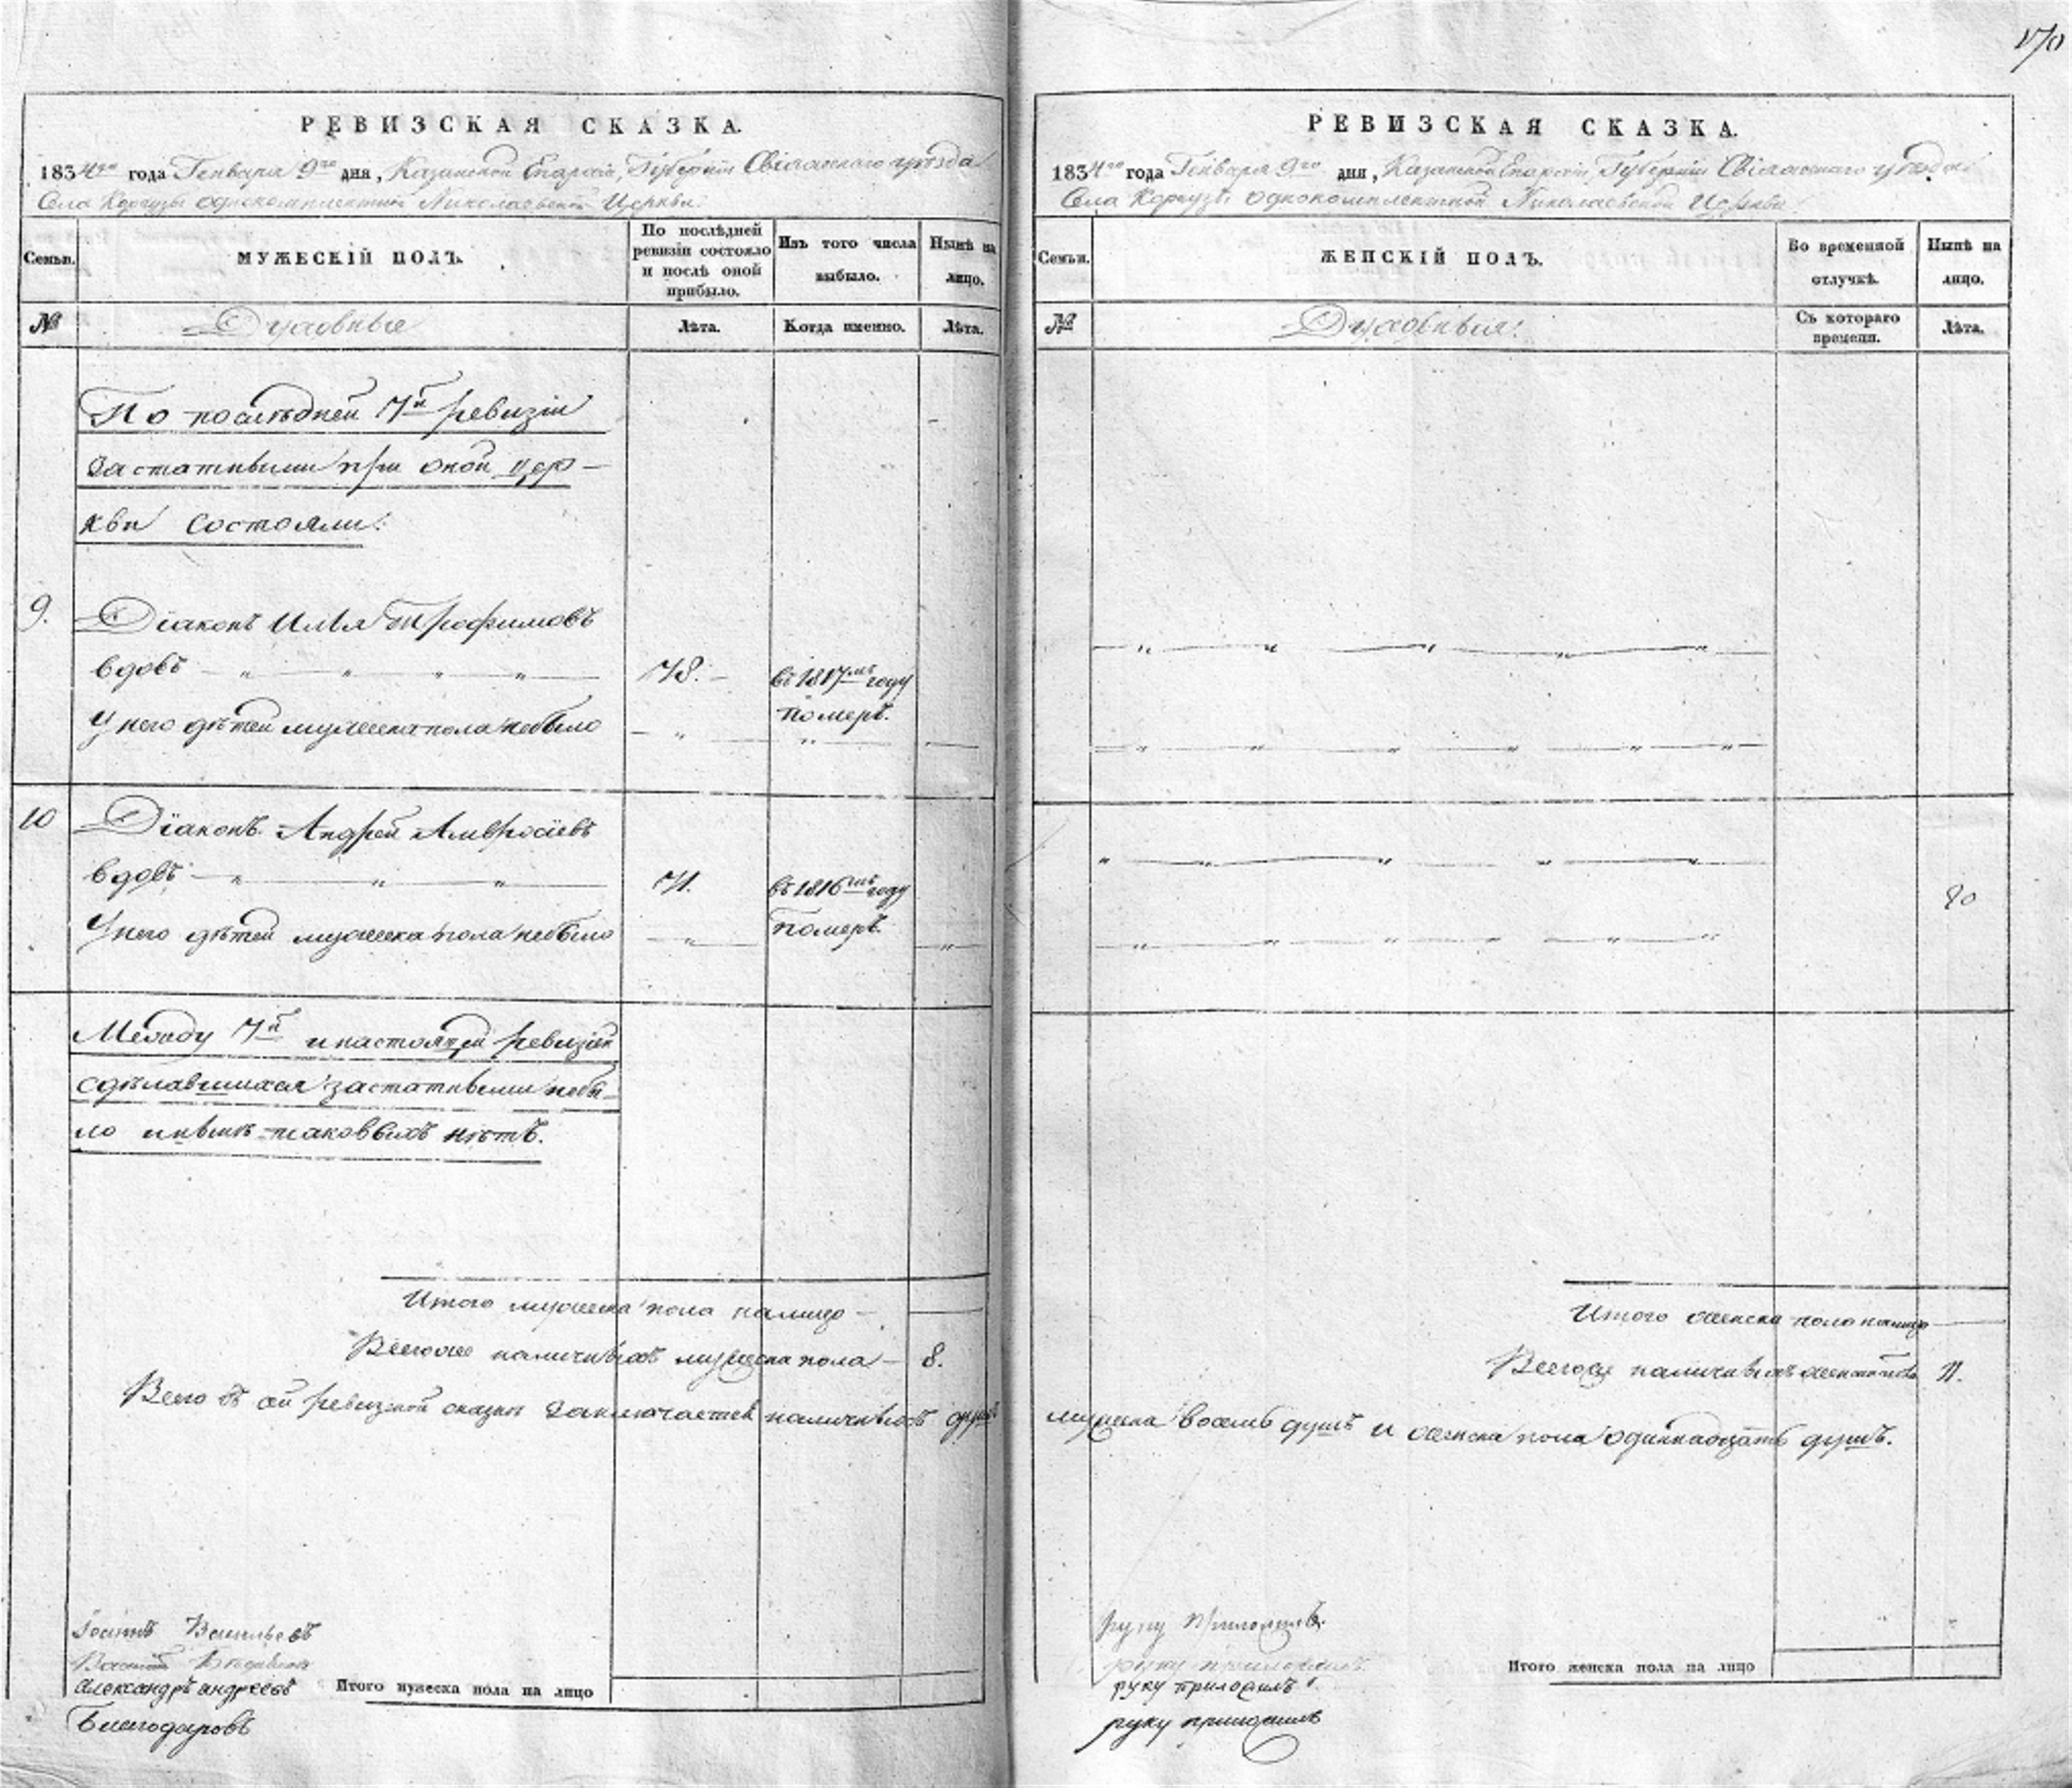 170
РЕВИЗСКАЯ СКАЗКА.
1834го года Генваря 9го дня, Казанской Епархіи, Губерніи Свіяжскаго уѣзда
Села Коргузы однокомплектной Николаевской Церкви.
Семьи.
МУЖЕСКІЙ ПОЛЪ.
По послѣдней ревизіи состояло и послѣ оной прибыло.
Изъ того числа выбыло.
Нынѣ на лицо.
№
Духовные
Лѣта.
Когда именно.
Лѣта.
По послѣдней 7й ревизіи
Застатными при оной цер-
кви состояли:
9.
Діаконъ Илья Трофимовъ
вдовъ
78.
въ 1817мъ году
померъ.
У него дѣтей мужеска пола небыло
10
Діаконъ Андрей Амвросіевъ
вдовъ
71.
въ 1816мъ году
померъ.
У него дѣтей мужеска пола небыло
Между 7й и настоящей ревизіей
сдѣлавшихся застатными небы-
ло и нынѣ таковыхъ нѣтъ.
Итого мужеска пола налицо
Всего же наличныхъ мужеска пола — 8.
Всего въ сей ревизской сказкѣ заключается наличныхъ душъ
Іоаннъ Васильевъ
Василій
Александръ андреевъ
Благодаровъ
Итого мужеска пола на лицо
РЕВИЗСКАЯ СКАЗКА.
1834го года Генваря 9го дня, Казанской Епархіи, Губерніи Свіяжскаго уѣзда
Села Коргузы однокомплектной Николаевской Церкви.
Семьи.
ЖЕНСКІЙ ПОЛЪ.
Во временной отлучкѣ.
Нынѣ на лицо.
№
Духовныя.
Съ котораго времени.
Лѣта.
Итого женска пола налицо
Всего же наличныхъ женска пола 11.
мужеска восемь душъ и женска пола одиннадцать душъ.
руку приложилъ.
руку приложилъ.
руку приложилъ.
руку приложилъ
Итого женска пола на лицо